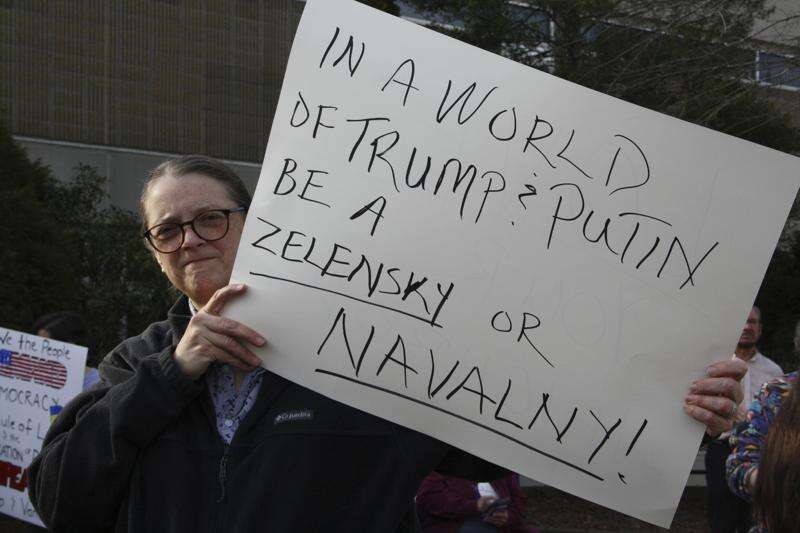 IN A WORLD
OF TRUMP & PUTIN
BE A
ZELENSKY OR
NAVALNY!
Columbia
We the People
MOCRACY
ule of L
& the